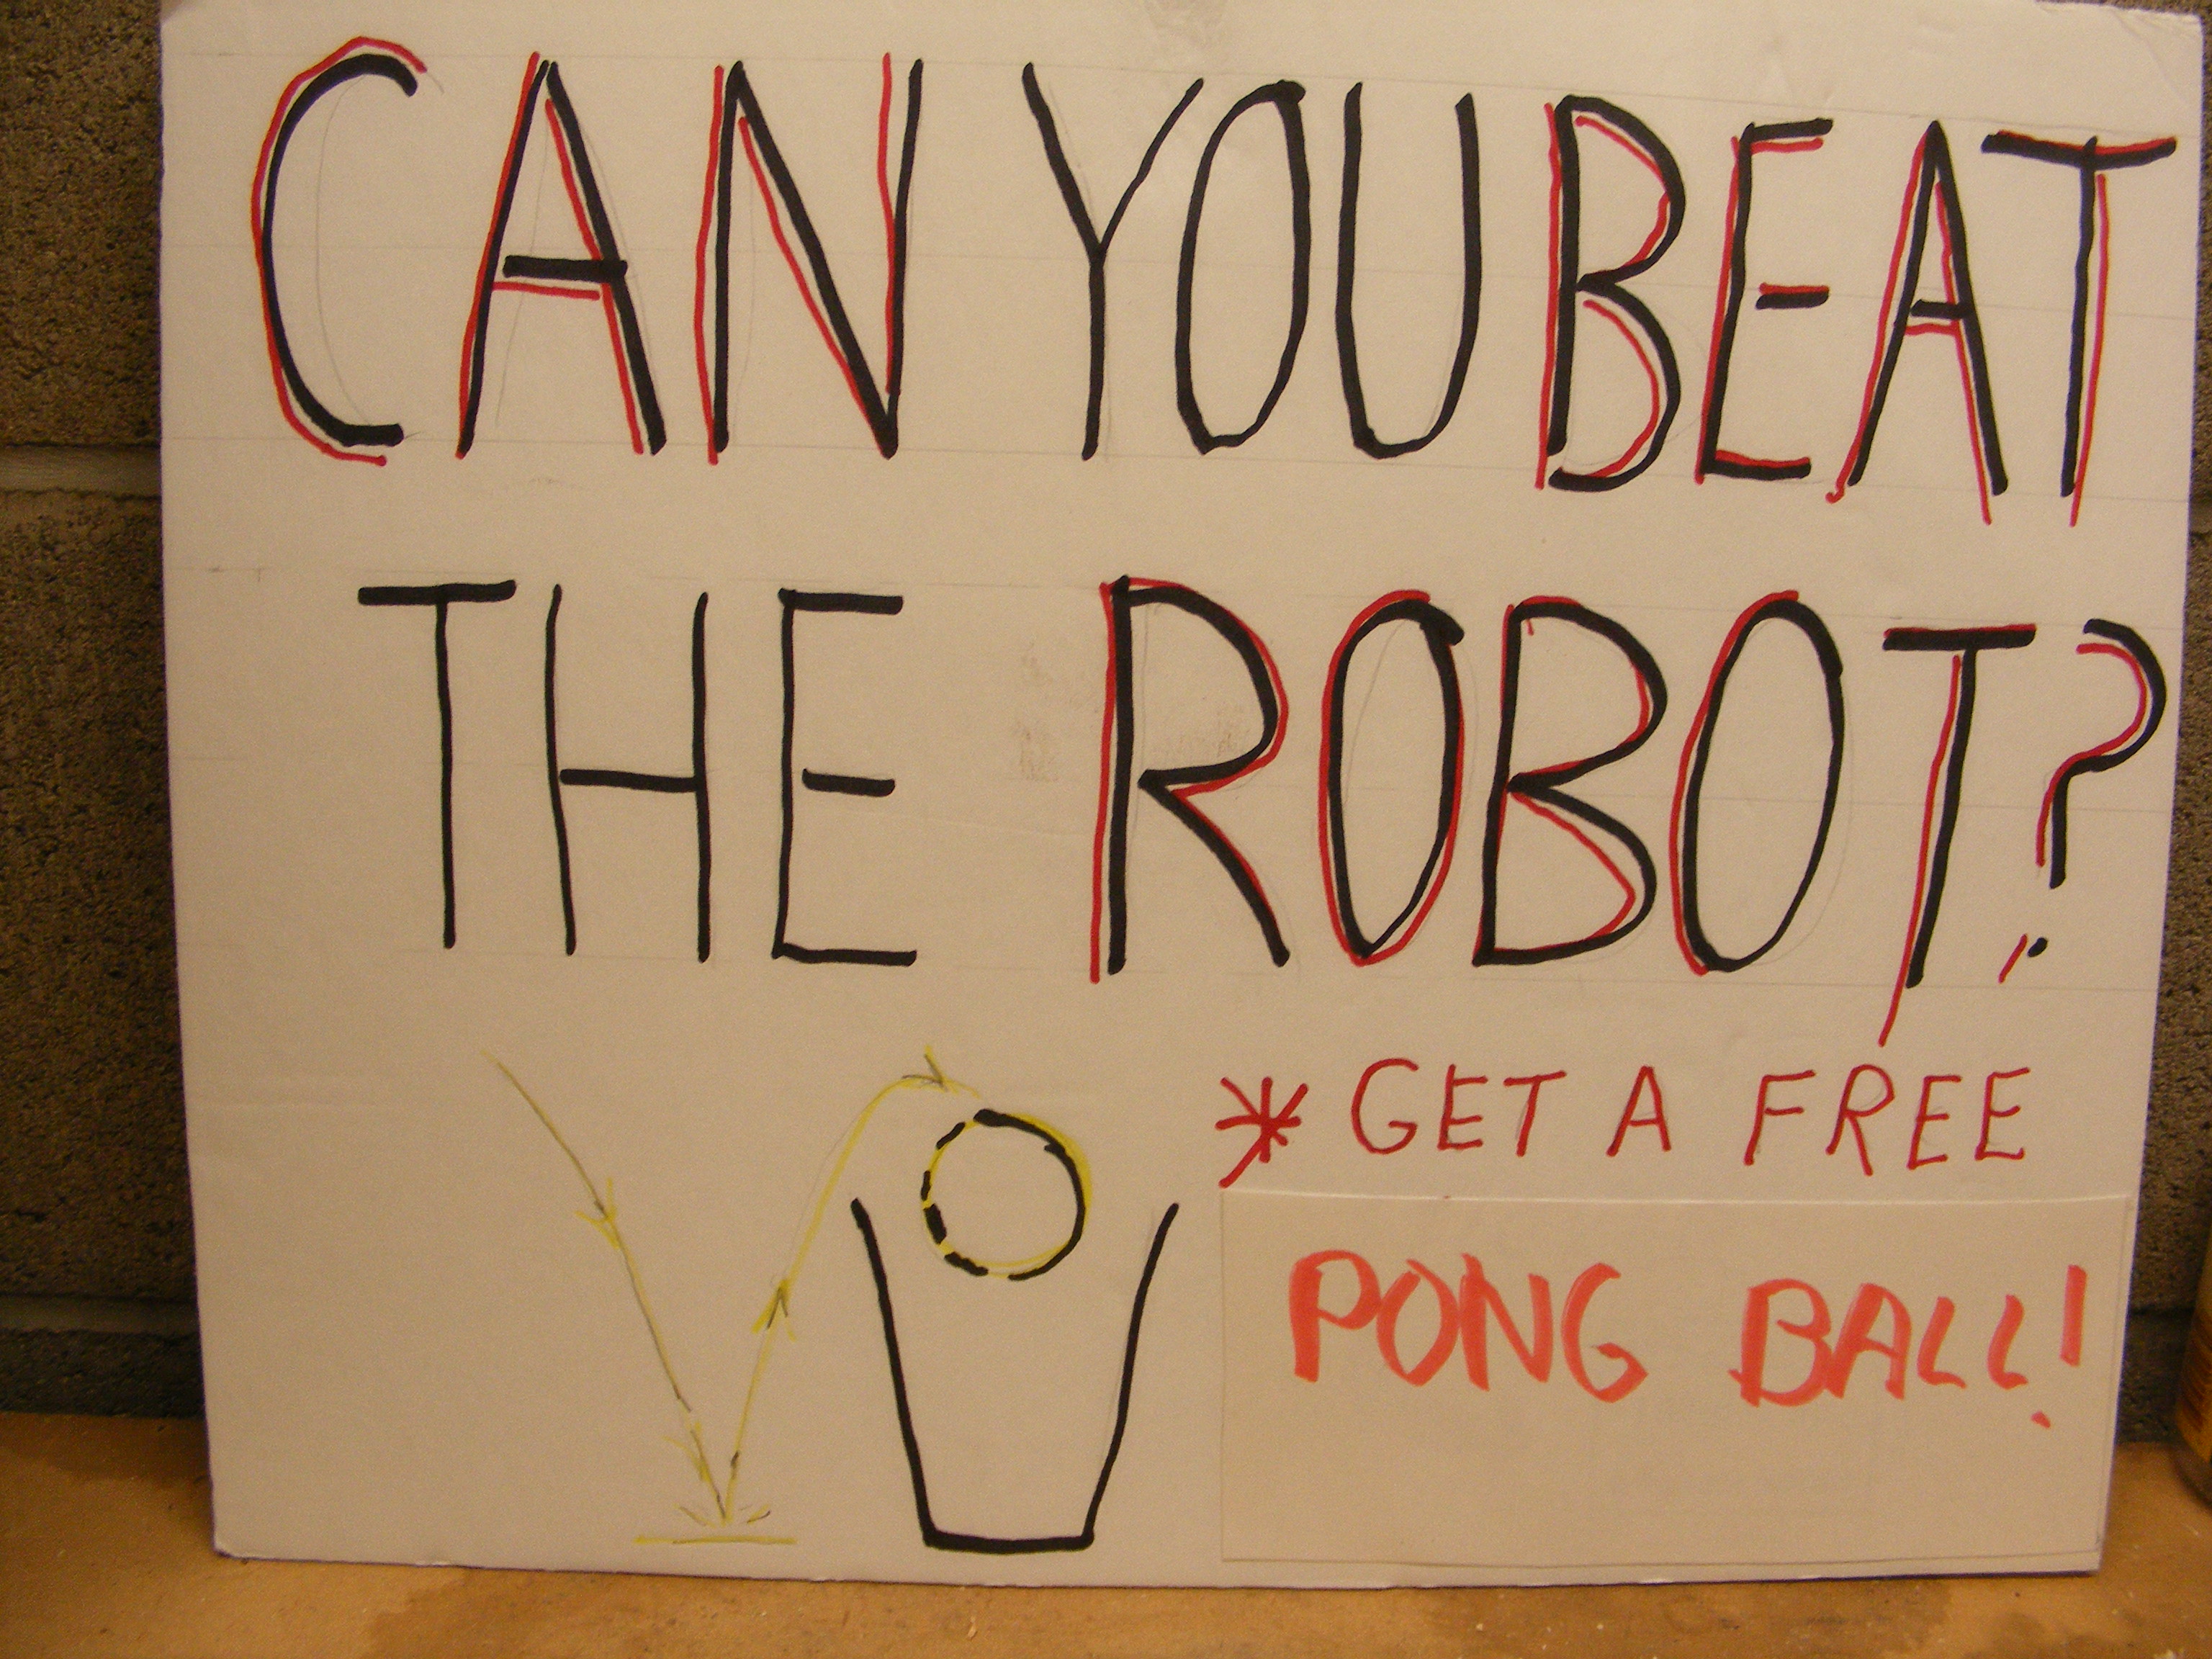 CAN YOU BEAT
THE ROBOT?
* GET A FREE
PONG BALL!